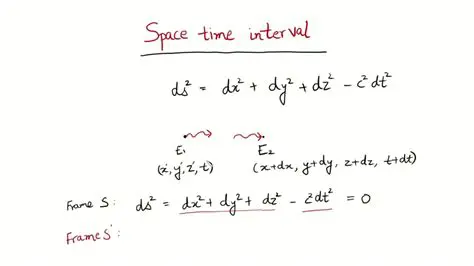 Space time interval
ds² = dx² + dy² + dz² - c²dt²
E₁ E₂
(x, y, z, t) (x+dx, y+dy, z+dz, t+dt)
Frame S: ds² = dx² + dy² + dz² - c²dt² = 0
Frame S':